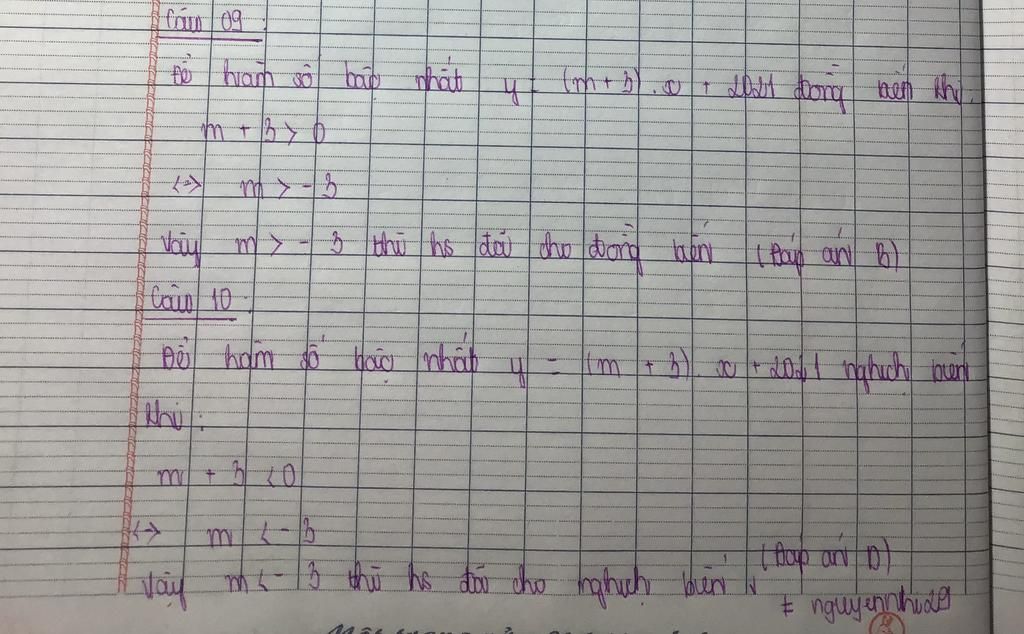 Câu 09:
Để hàm số bậc nhất y = (m + 3).x + 2021 đồng biến khi
m + 3 > 0
<=> m > - 3
Vậy m > - 3 thì hs đã cho đồng biến (Đáp án B)
Câu 10:
Để hàm số bậc nhất y = (m + 3).x + 2021 nghịch biến
khi:
m + 3 < 0
<-> m < - 3
Vậy m < - 3 thì hs đã cho nghịch biến (Đáp án D)
# nguyennhi29